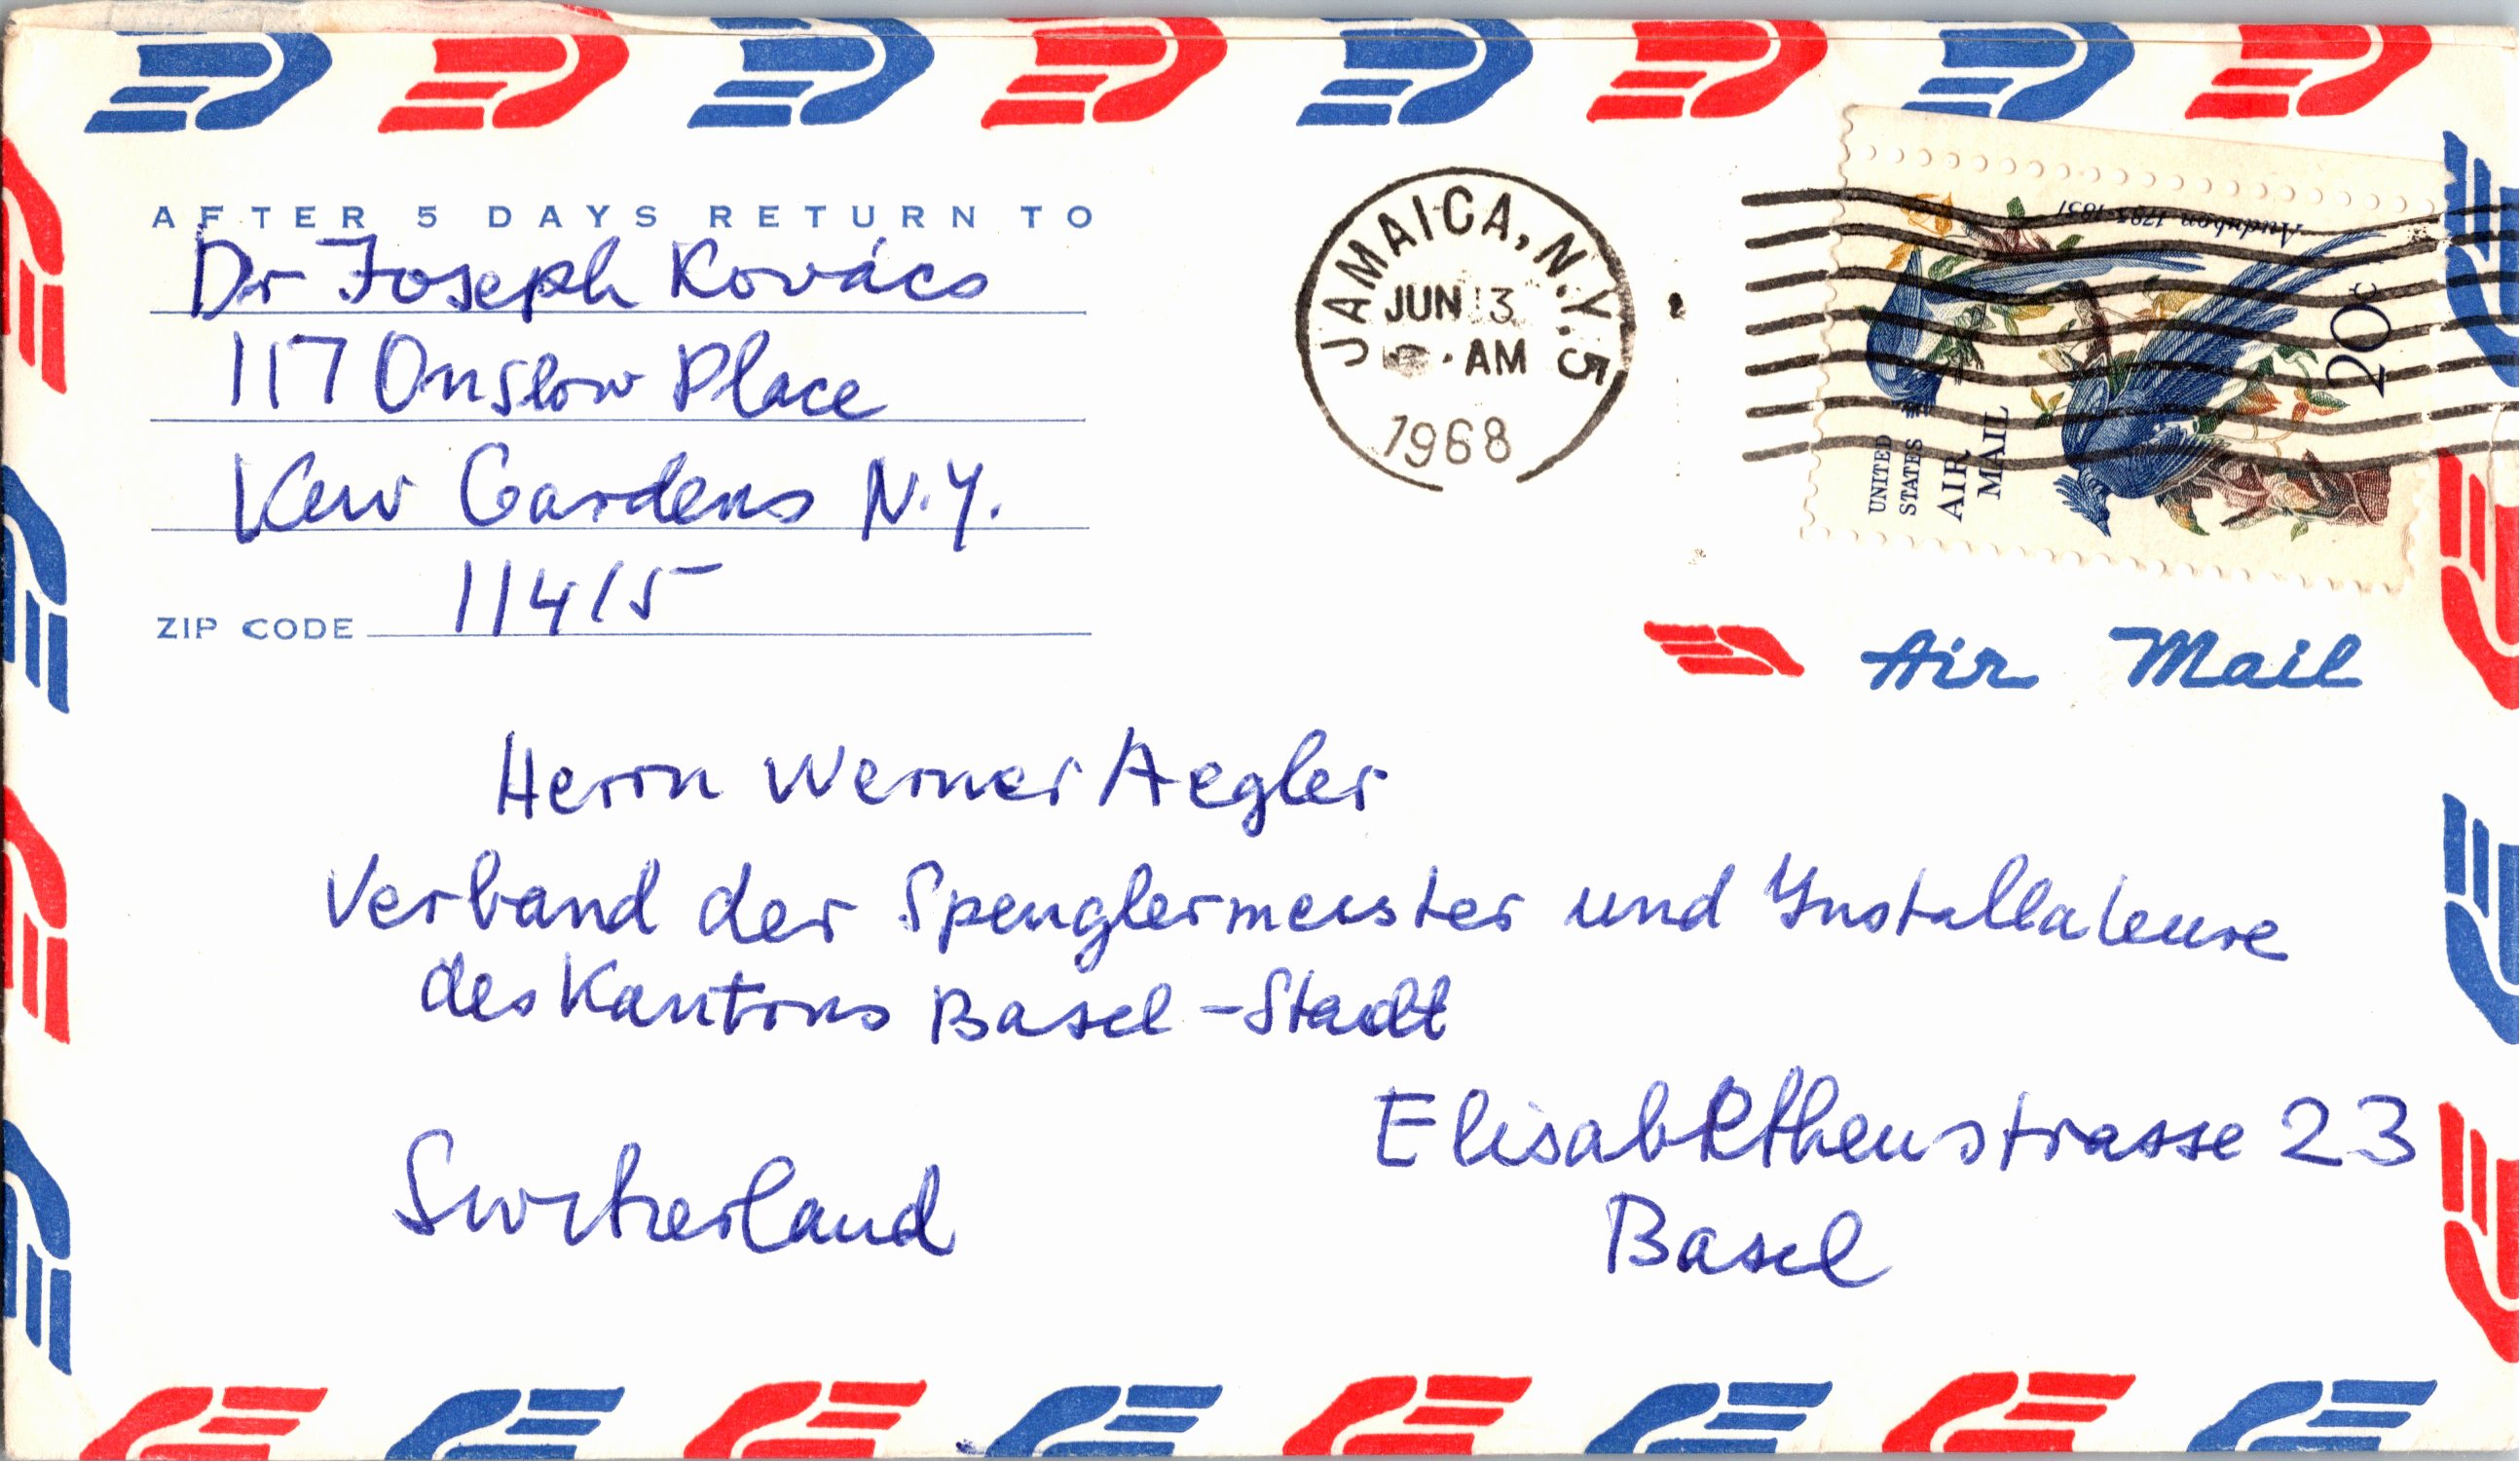 AFTER 5 DAYS RETURN TO
Dr Joseph Kovács
117 Onslow Place
Kew Gardens N.Y.
11415
ZIP CODE
JAMAICA, N.Y. 5
JUN 13
AM
1968
Audubon 1785-1851
20c
UNITED
STATES
AIR
MAIL
Air Mail
Herrn Werner Aegler
Verband der Spenglermeister und Installateure
des Kantons Basel-Stadt
Elisabethenstrasse 23
Switzerland
Basel